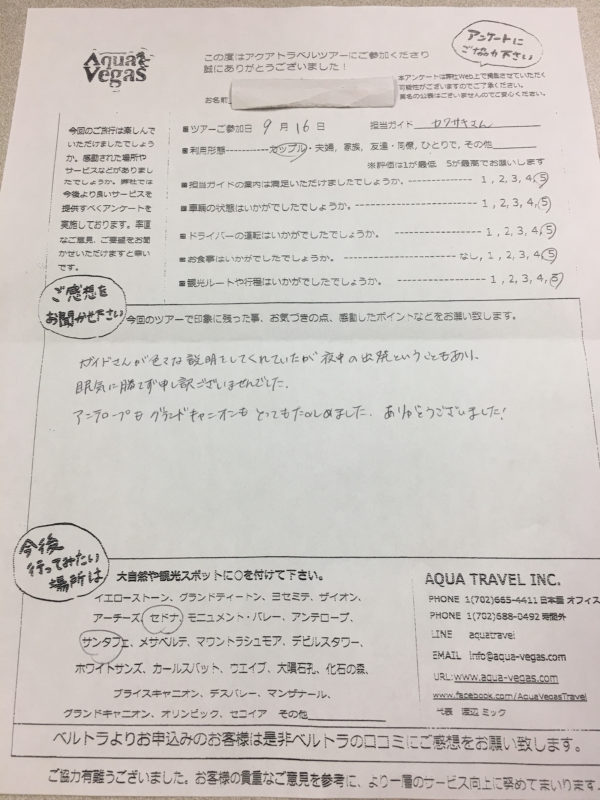 Aqua Vegas
この度はアクアトラベルツアーにご参加くださり
誠にありがとうございました！
アンケートに
ご協力下さい
お名前
本アンケートは弊社Web上で掲載させていただく
可能性がございますのでご了承ください。
実名の公表はございませんのでご安心ください。
今回のご旅行は楽しんで
いただけましたでしょう
か。感動された場所や
サービスなどがありまし
たでしょうか。弊社では
今後より良いサービスを
提供すべくアンケートを
実施しております。率直
なご意見、ご要望をお聞
かせいただけますと幸い
です。
■ツアーご参加日 9 月 16 日 担当ガイド カワサキさん
■利用形態------------カップル・夫婦, 家族, 友達・同僚, ひとりで, その他
※評価は1が最低 5が最高でお願いします
■担当ガイドの案内は満足いただけましたでしょうか。 ---------------- 1, 2, 3, 4, 5
■車輌の状態はいかがでしたでしょうか。---------------- 1, 2, 3, 4, 5
■ドライバーの運転はいかがでしたでしょうか。 ---------------- 1, 2, 3, 4, 5
■お食事はいかがでしたでしょうか。 ---------------- なし, 1, 2, 3, 4, 5
■観光ルートや行程はいかがでしたでしょうか。 ---------------- 1, 2, 3, 4, 5
ご感想を
お聞かせ下さい
今回のツアーで印象に残った事、お気づきの点、感動したポイントなどをお願い致します。
ガイドさんが色々な説明をしてくれていたが夜中の出発ということもあり、
眠気に勝てず申し訳ございませんでした.
アンテロープも グランドキャニオンも とってもたのしめました. ありがとうございました！
今後
行ってみたい
場所は
大自然や観光スポットに○を付けて下さい。
イエローストーン、グランドティートン、ヨセミテ、ザイオン、
アーチーズ、セドナ、モニュメント・バレー、アンテロープ、
サンタフェ、メサベルデ、マウントラシュモア、デビルスタワー、
ホワイトサンズ、カールスバット、ウエイブ、大隕石孔、化石の森、
ブライスキャニオン、デスバレー、マンザナール、
グランドキャニオン、オリンピック、セコイア その他
AQUA TRAVEL INC.
PHONE 1(702)665-4411 日本語 オフィス
PHONE 1(702)688-0492 時間外
LINE aquatravel
EMAIL info@aqua-vegas.com
URL: www.aqua-vegas.com
www.facebook.com/AquaVegasTravel
代表 渡辺 ミック
ベルトラよりお申込みのお客様は是非ベルトラの口コミにご感想をお願い致します。
ご協力有難うございました。お客様の貴重なご意見を参考に、より一層のサービス向上に努めてまいります.